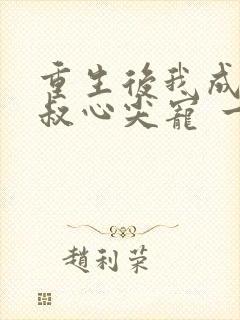 重生後我成
叔心尖寵
趙利榮